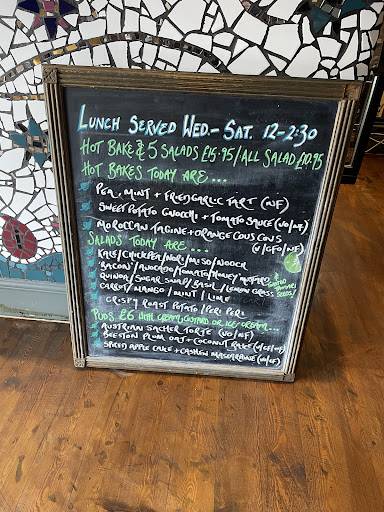 LUNCH SERVED WED.- SAT. 12-2:30
HOT BAKE & 5 SALADS £15.95/ALL SALAD £10.95
HOT BAKES TODAY ARE...
PEA, MINT + FRIED GARLIC TART (NF)
SWEET POTATO GNOCCHI + TOMATO SAUCE (VO/NF)
MOROCCAN TAGINE + ORANGE COUSCOUS
(V/GFO/NF)
SALADS TODAY ARE...
KALE/CHICKPEA/NORI/MISO/NOOCH
'BACON'/AVOCADO/TOMATO/HONEY MUSTARD
QUINOA/SUGAR SNAP/BASIL/LEMON GRASS
SEEDS
CARROT/MANGO/MINT/LIME
CRISPY ROAST POTATO/PERI PERI
PUDS £6 WITH CREAM, CUSTARD OR ICE CREAM...
AUSTRIAN SACHER TORTE (VO/NF)
BEESTON PLUM OAT + COCONUT BAKE (V/GF/NF)
SPICED APPLE CAKE + CASHEW MASCARPONE (VO/GF)